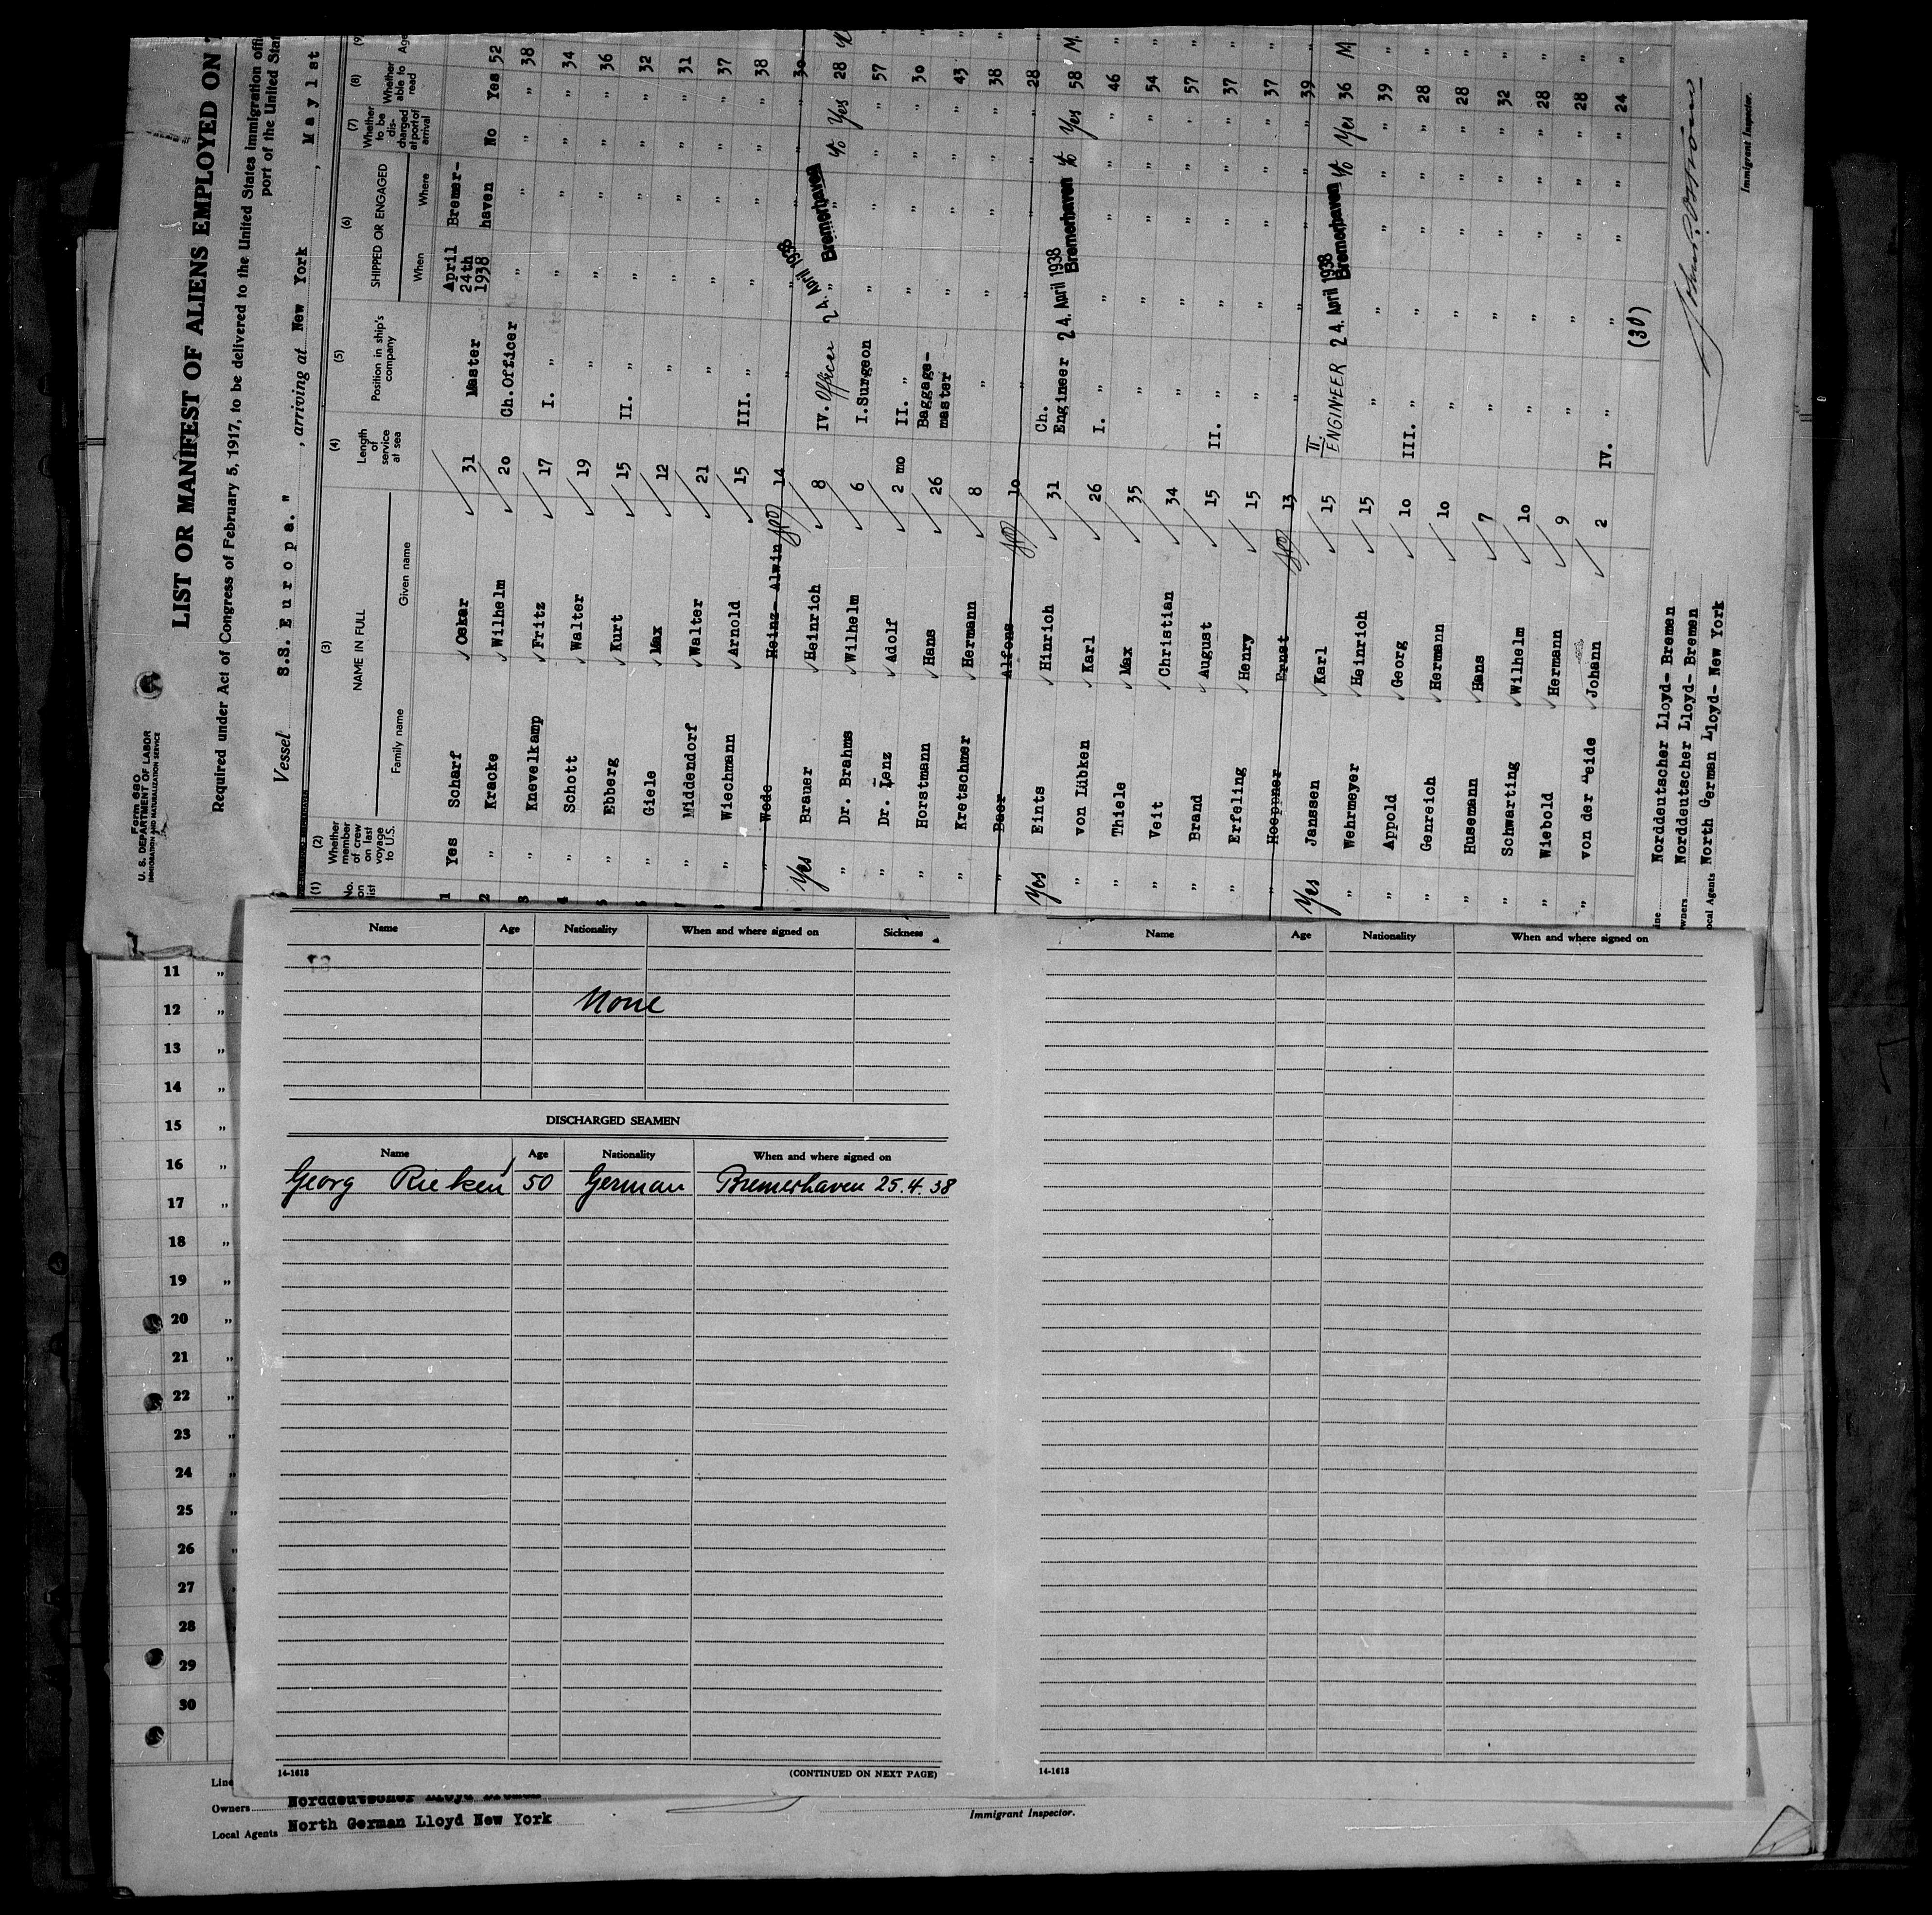 Form 680
U. S. DEPARTMENT OF LABOR
IMMIGRATION AND NATURALIZATION SERVICE
LIST OR MANIFEST OF ALIENS EMPLOYED ON
Required under Act of Congress of February 5, 1917, to be delivered to the United States immigration
port of the United
Vessel S.S. Europa." , arriving at New York , May 1st
(1) (2) (3) (4) (5) (6) (7) (8)
No. on list Whether member of crew on last voyage to U.S. NAME IN FULL Family name Given name Length of service at sea Position in ship's company SHIPPED OR ENGAGED When Where Whether to be discharged at port of arrival Whether able to read
1 Yes Scharf Oskar 31 Master April 24th 1938 Bremerhaven No Yes 52
2 " Kracke Wilhelm 20 Ch. Officer " " " " 38
3 " Knevelkamp Fritz 17 I. " " " " " 34
4 " Schott Walter 19 " " " " " 36
5 " Ebberg Kurt 15 II. " " " " " 32
" Giele Max 12 " " " " " 31
" Middendorf Walter 21 " " " " " 37
" Wiechmann Arnold 15 III. " " " " " 38
" Wede Heinz- Alwin 14 " " " " " 30
Yes Brauer Heinrich 8 IV. Officer 24. April 1938 Bremerhaven No Yes 28
" Dr. Brahms Wilhelm 6 I. Surgeon " " " " 57
" Dr. Lenz Adolf 2 mo II. " " " " " 30
" Horstmann Hans 26 Baggage-master " " " " 43
" Kretschmer Hermann 8 " " " " " 38
" Baer Alfons 10 " " " " " 28
Yes Eints Hinrich 31 Ch. Engineer 24. April 1938 Bremerhaven No Yes 58 M.
" von Lübken Karl 26 I. " " " " " 46 "
" Thiele Max 35 " " " " " 54 "
" Veit Christian 34 " " " " " 57 "
" Brand August 15 II. " " " " " 37 "
" Erfeling Henry 15 " " " " " 37 "
" Hoeppner Ernst 13 " " " " " 39 "
Yes Janssen Karl 15 II. ENGINEER 24. April 1938 Bremerhaven No Yes 36 M
" Wehrmeyer Heinrich 15 " " " " " 39 "
" Appold Georg 10 III. " " " " " 28 "
" Genreich Hermann 10 " " " " " 28 "
" Husemann Hans 7 " " " " " 32 "
" Schwarting Wilhelm 10 " " " " " 28 "
" Wiebold Hermann 9 " " " " " 28 "
" von der Heide Johann 2 IV. " " " " " 24 "
(30)
Norddeutscher Lloyd- Bremen
Norddeutscher Lloyd- Bremen
Local Agents North German Lloyd- New York
Immigrant Inspector.
Name Age Nationality When and where signed on Sickness
None
DISCHARGED SEAMEN
Name Age Nationality When and where signed on
Georg Rieken 50 German Bremerhaven 25.4.38
14-1613 (CONTINUED ON NEXT PAGE)
Name Age Nationality When and where signed on
14-1613
11 "
12 "
13 "
14 "
15 "
16 "
17 "
18 "
19 "
20 "
21 "
22 "
23 "
24 "
25 "
26 "
27 "
28 "
29
30
Line
Owners Norddeutscher Lloyd Bremen
Local Agents North German Lloyd New York
Immigrant Inspector.